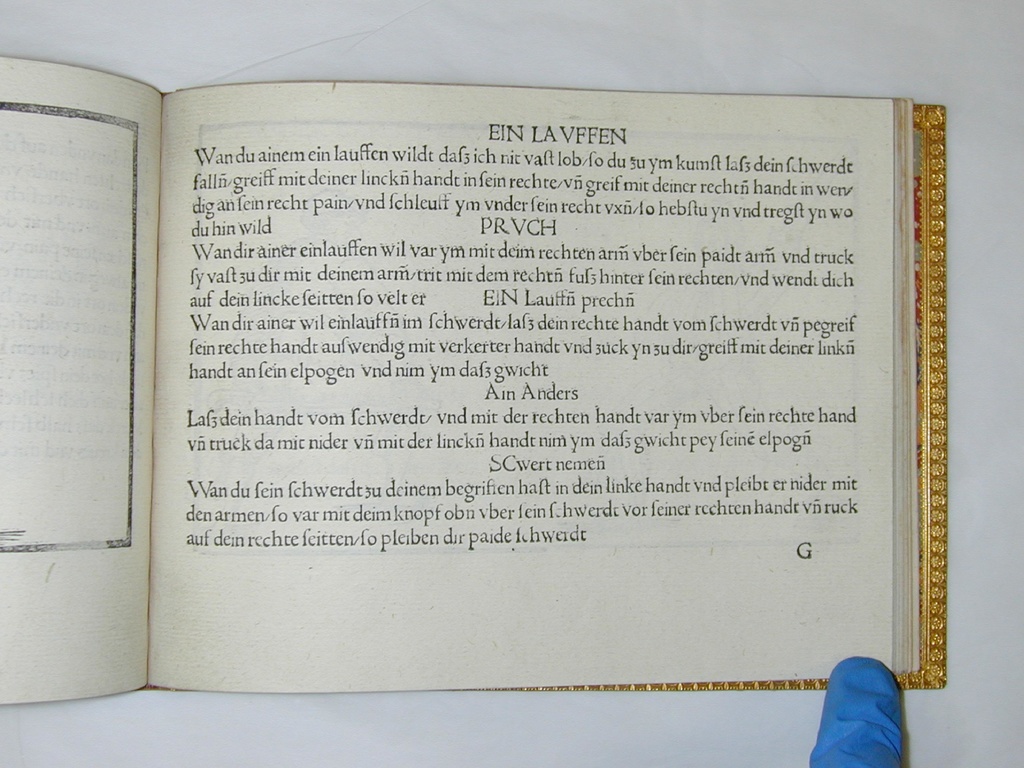 EIN LAVFFEN
Wan du ainem ein lauffen wildt daſʒ ich nit vaſt lob/ſo du ʒu ym kumſt laſʒ dein ſchwerdt
falln̄/greiff mit deiner linckn̄ handt in ſein rechte/vn̄ greif mit deiner rechtn̄ handt in wen/
dig an ſein recht pain/vnd ſchleuff ym vnder ſein recht vxn̄/ſo hebſtu yn vnd tregſt yn wo
du hin wild PRVCH
Wan dir ainer einlauffen wil var ym mit deim rechten arm̄ vber ſein paidt arm̄ vnd truck
ſy vaſt ʒu dir mit deinem arm̄/trit mit dem rechtn̄ fuſʒ hinter ſein rechten/vnd wendt dich
auf dein lincke ſeitten ſo velt er EIN Lauffn̄ prechn̄
Wan dir ainer wil einlauffn̄ im ſchwerdt/laſʒ dein rechte handt vom ſchwerdt vn̄ pegreif
ſein rechte handt auſwendig mit verkerter handt vnd ʒuck yn ʒu dir/greiff mit deiner linkn̄
handt an ſein elpogen vnd nim ym daſʒ gwicht
Ain Anders
Laſʒ dein handt vom ſchwerdt/ vnd mit der rechten handt var ym vber ſein rechte hand
vn̄ truck da mit nider vn̄ mit der linckn̄ handt nim ym daſʒ gwicht pey ſeinē elpogn̄
SCwert nemen̄
Wan du ſein ſchwerdt ʒu deinem begriffen haſt in dein linke handt vnd pleibt er nider mit
den armen/ſo var mit deim knopf obn̄ vber ſein ſchwerdt vor ſeiner rechten handt vn̄ ruck
auf dein rechte ſeitten/ſo pleiben dir paide ſchwerdt
G